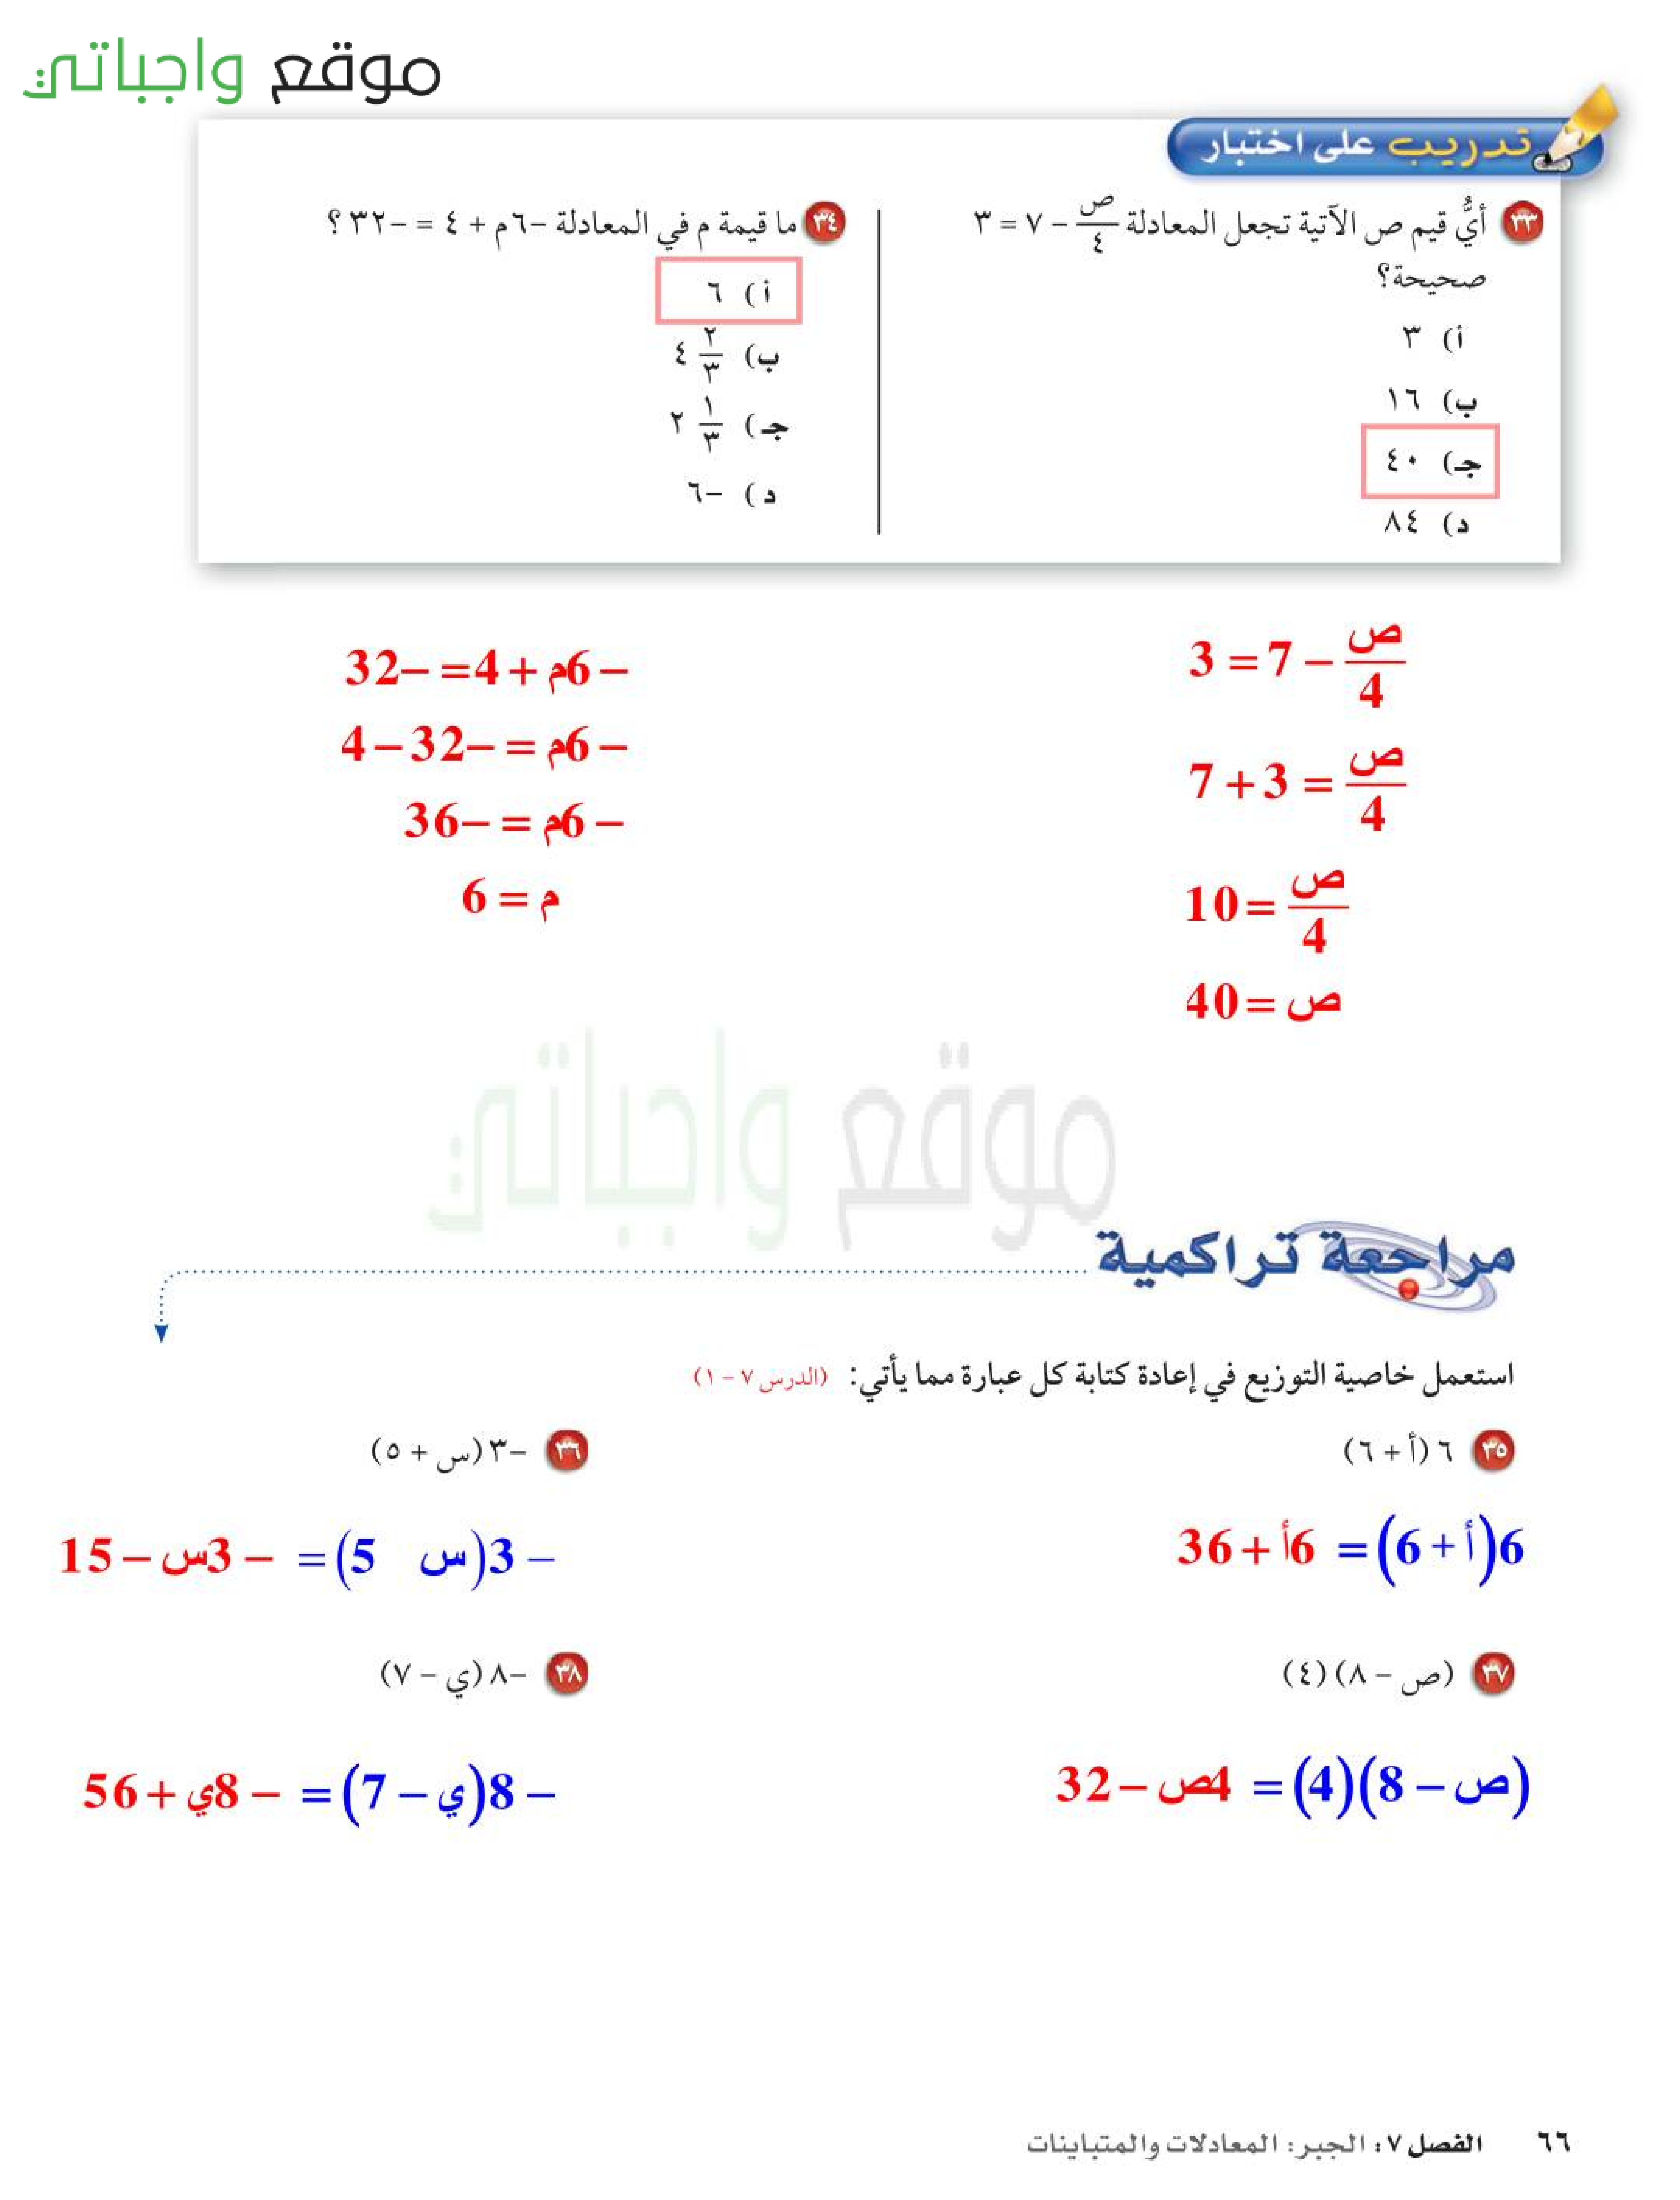 موقع واجباتي
تدريب على اختبار
٣٣ أيُّ قيم ص الآتية تجعل المعادلة ص/٤ − ٧ = ٣
صحيحة؟
أ) ٣
ب) ١٦
جـ) ٤٠
د) ٨٤
٣٤ ما قيمة م في المعادلة −٦م + ٤ = −٣٢ ؟
أ) ٦
ب) ٤ ٢/٣
جـ) ٢ ١/٣
د) −٦
ص/4 − 7 = 3
ص/4 = 3 + 7
ص/4 = 10
ص = 40
− 6م + 4 = −32
− 6م = −32 − 4
− 6م = −36
م = 6
موقع واجباتي
مراجعة تراكمية
استعمل خاصية التوزيع في إعادة كتابة كل عبارة مما يأتي: (الدرس ٧ – ١)
٣٥ ٦ (أ + ٦)
٣٦ −٣ (س + ٥)
6(أ + 6) = 6أ + 36
− 3(س 5) = − 3س − 15
٣٧ (ص − ٨) (٤)
٣٨ −٨ (ي − ٧)
(ص − 8)(4) = 4ص − 32
− 8(ي − 7) = − 8ي + 56
٦٦ الفصل ٧: الجبر: المعادلات والمتباينات